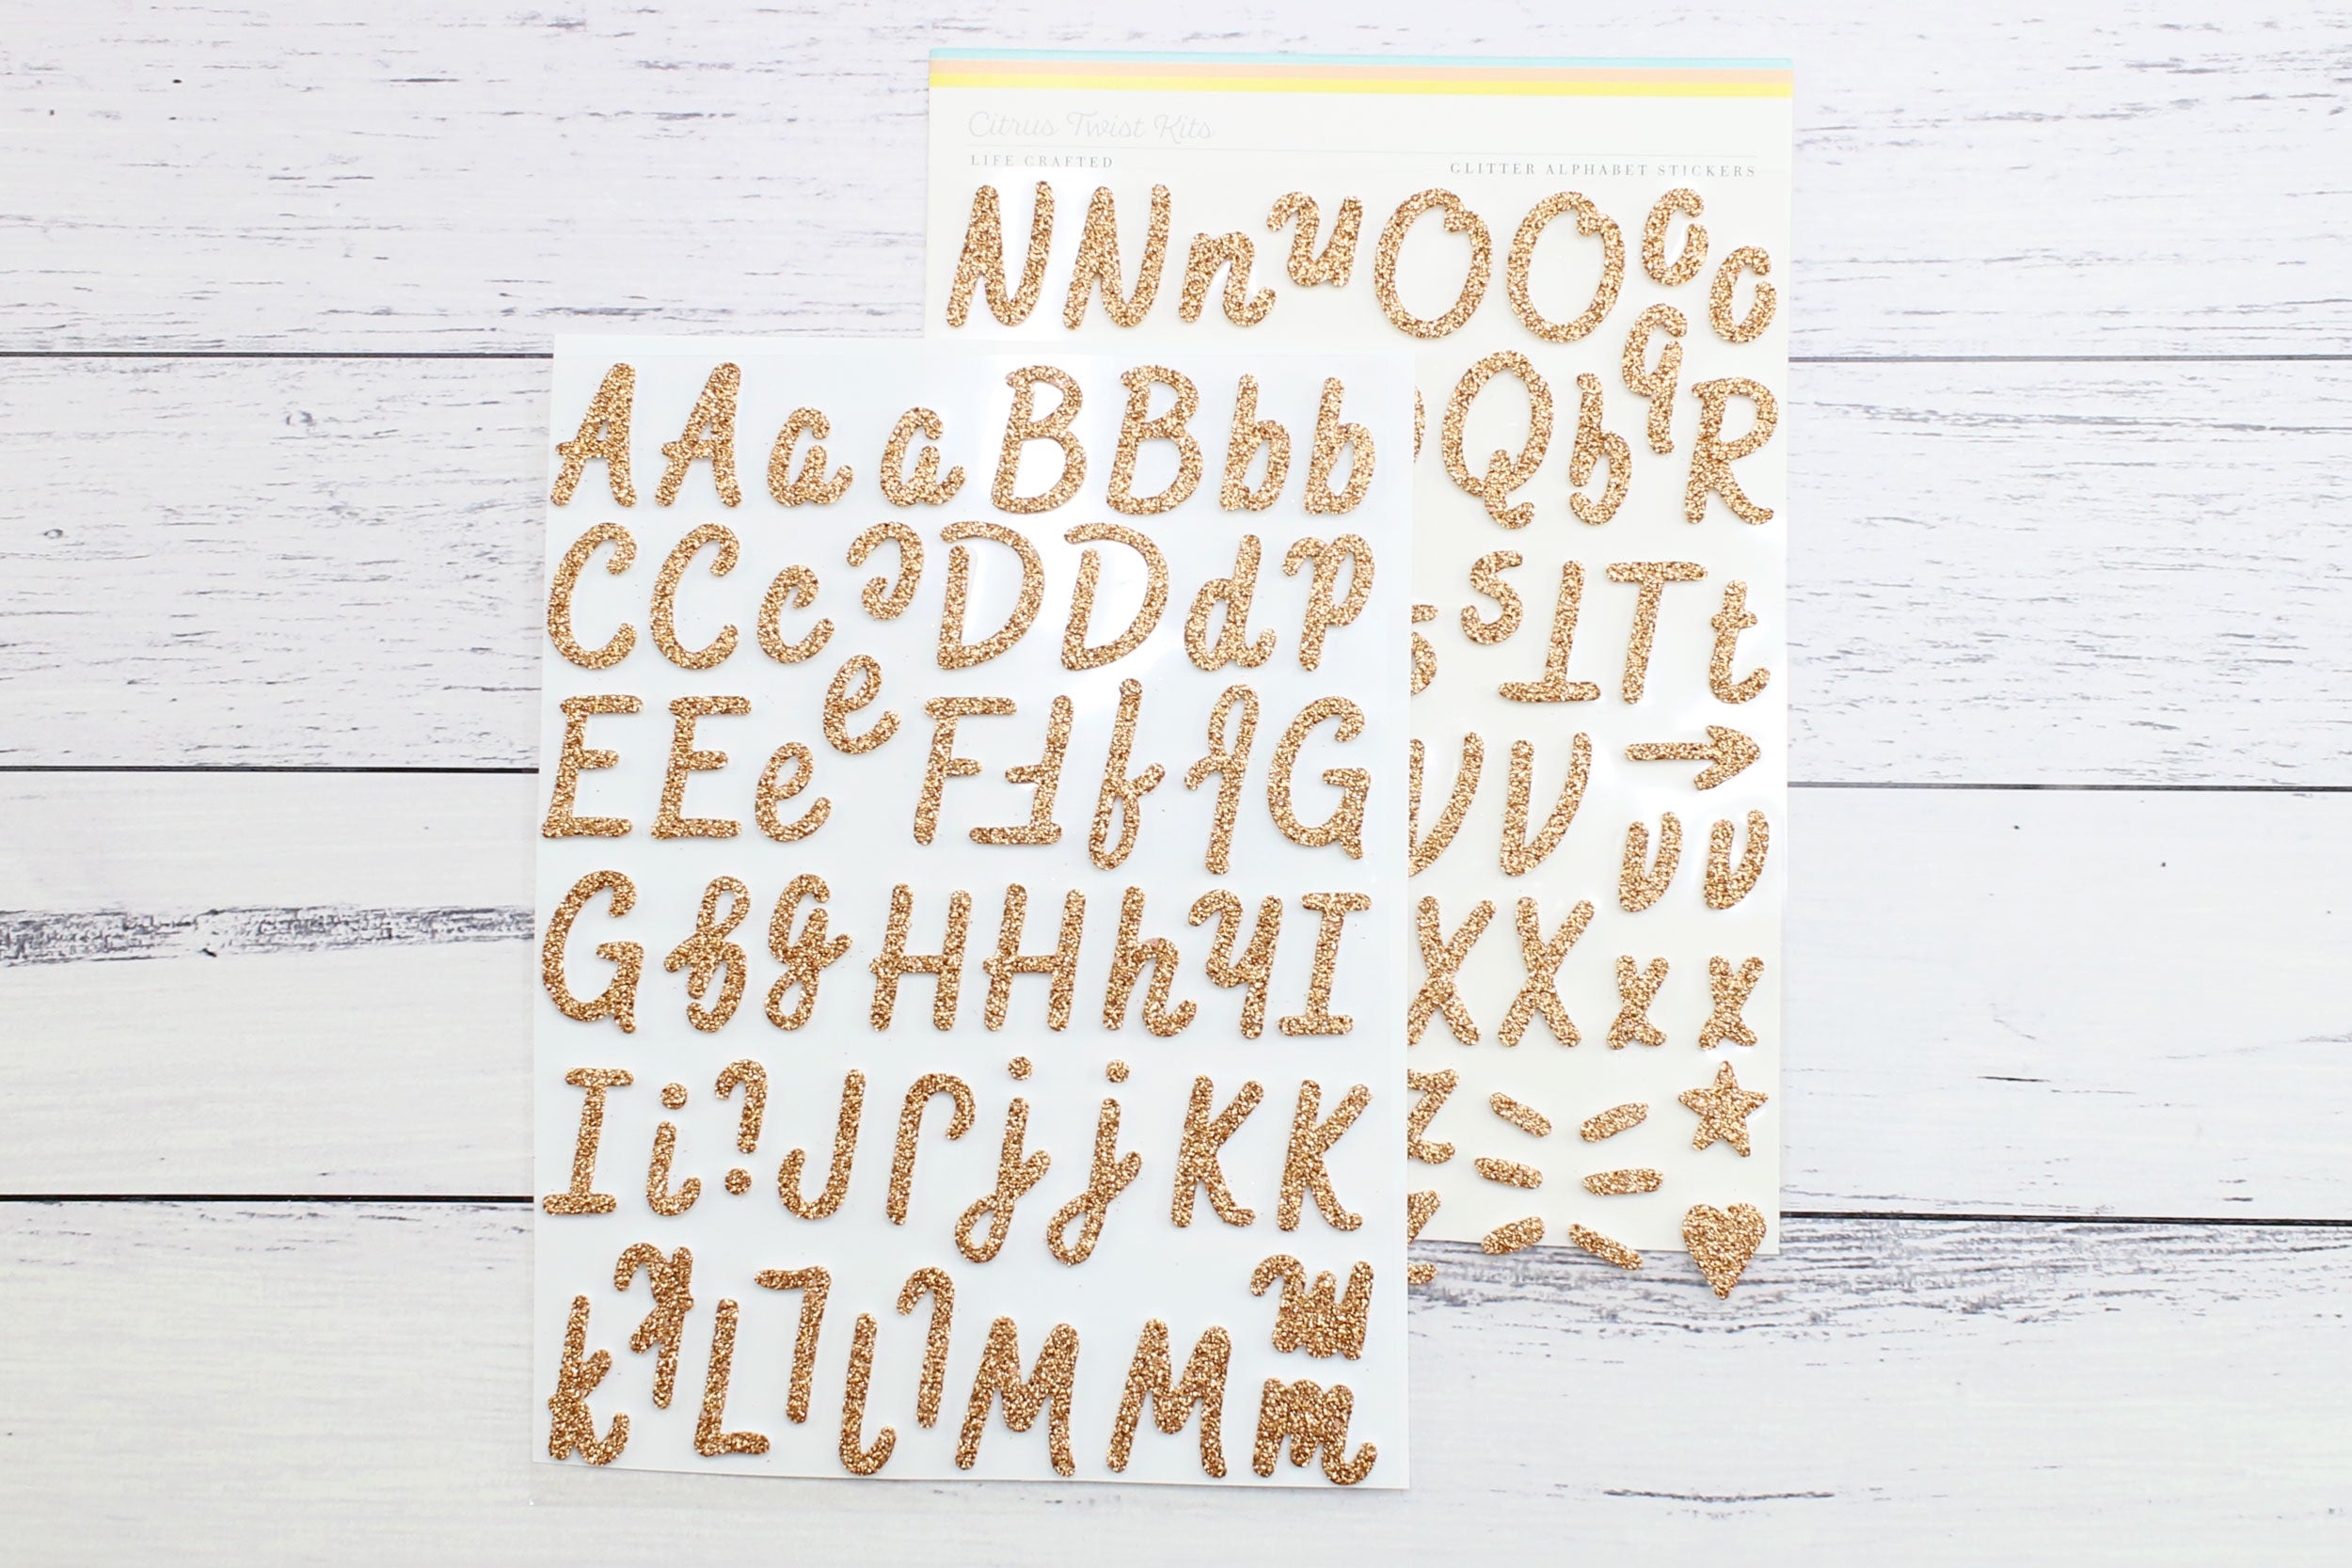 Citrus Twist Kits
LIFE CRAFTED
GLITTER ALPHABET STICKERS
N N n n O O o o
Q q q R
s T T t
V V
v v
X X x x
z
A A a a B B b b
C C c c D D d d
E E e e F F f f G
G g g H H h h I
I i i J J j j K K
k k L L l l M M m m